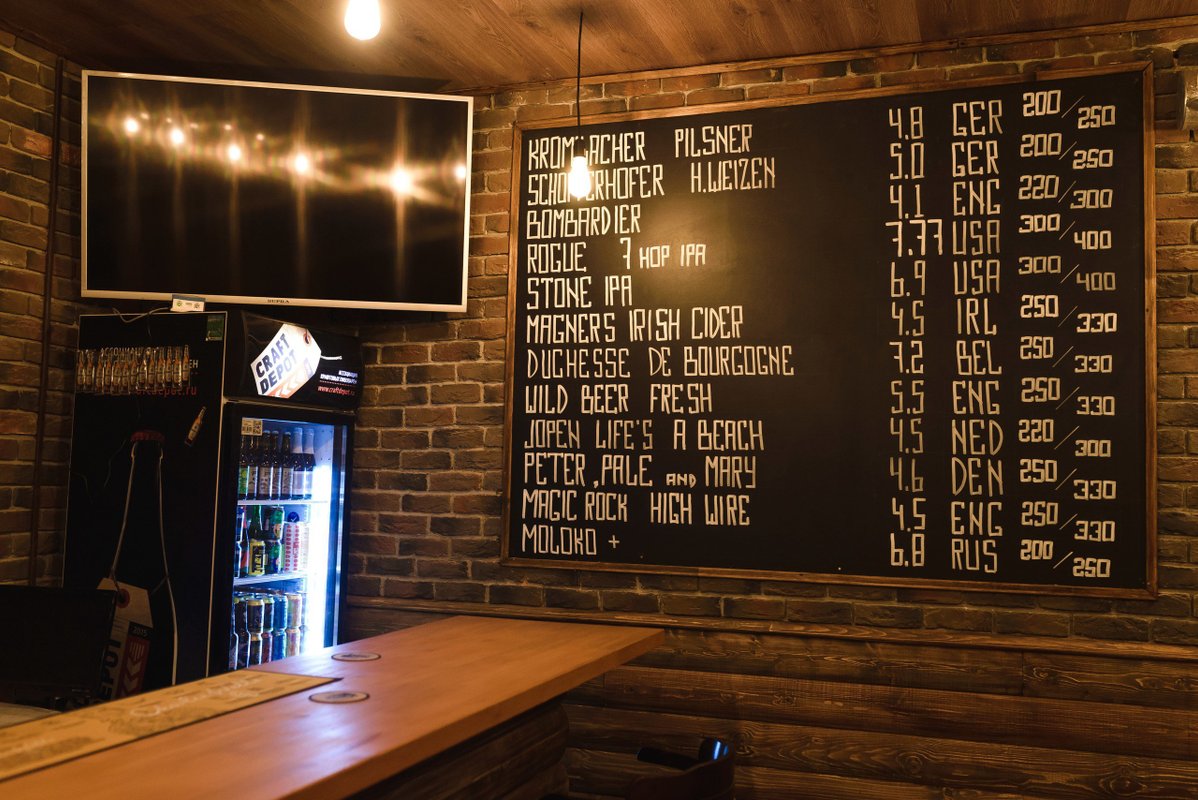 SUPRA
CRAFT
DEPOT
www.craftdepot.ru
2015
KROMBACHER PILSNER 4.8 GER 200/250
SCHOFFERHOFER H.WEIZEN 5.0 GER 200/250
BOMBARDIER 4.1 ENG 220/300
ROGUE 7 HOP IPA 7.77 USA 300/400
STONE IPA 6.9 USA 300/400
MAGNERS IRISH CIDER 4.5 IRL 250/330
DUCHESSE DE BOURGOGNE 7.2 BEL 250/330
WILD BEER FRESH 5.5 ENG 250/330
JOPEN LIFE'S A BEACH 4.5 NED 220/300
PETER, PALE AND MARY 4.6 DEN 250/330
MAGIC ROCK HIGH WIRE 4.5 ENG 250/330
MOLOKO + 6.8 RUS 200/250